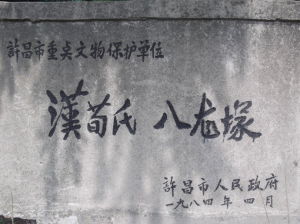 許昌市重点文物保护单位
漢荀氏八龙塚
許昌市人民政府
一九八四年四月